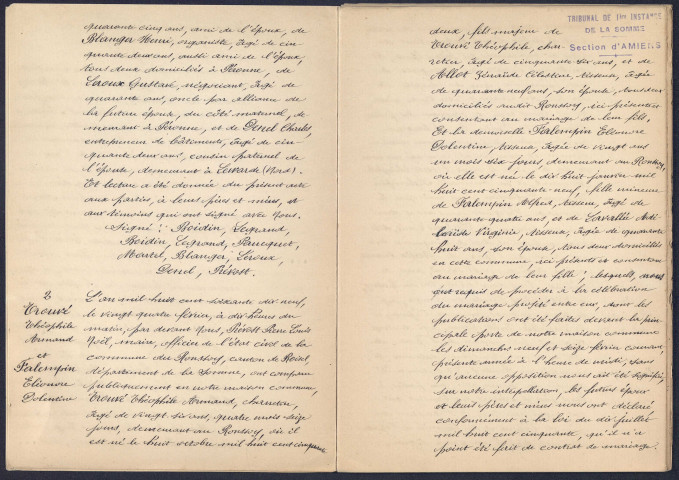 quarante cinq ans, ami de l'époux, de
Blanger Henri, organiste, âgé de cin-
quante deux ans, aussi ami de l'époux,
tous deux domiciliés à Péronne, de
Leroux Gustave, négociant, âgé de
quarante ans, oncle par alliance de
la future épouse, du côté maternel, de-
meurant à Péronne, et de Deuil Charles,
entrepreneur de bâtiments, âgé de cin-
quante deux ans, cousin paternel de
l'épouse, demeurant à Lewarde (Nord).
Et lecture a été donnée du présent acte
aux parties, à leurs pères et mères, et
aux témoins qui ont signé avec Nous.
Signé : Boidin, Legrand,
Boidin, Legrand,
Blanger, Leroux,
Deuil, Prévost.
2
Trouvé
Théophile
Armand
et
Falempin
Eléonore
Dolentine
L'an mil huit cent soixante dix neuf,
le vingt quatre février, à dix heures du
matin, par devant Nous, Prévost Pierre Louis
Noël, maire, officier de l'état civil de la
commune du Ronssoy, canton de Roisel,
département de la Somme, ont comparu
publiquement en notre maison commune,
Trouvé Théophile Armand, charretier,
âgé de vingt six ans, quatre mois seize
jours, demeurant au Ronssoy, où il
est né le huit octobre mil huit cent cinquante
TRIBUNAL DE 1ère INSTANCE
DE LA SOMME
Section d'AMIENS
deux, fils majeur de
Trouvé Théophile, char-
retier, âgé de cinquante six ans, et de
Allot Zénaïde Célestine, tisseuse, âgée
de quarante neuf ans, son épouse, tous deux
domiciliés audit Ronssoy, ici présents et
consentant au mariage de leur fils.
Et la demoiselle Falempin Eléonore
Dolentine, tisseuse, âgée de vingt ans
un mois six jours, demeurant au Ronssoy,
où elle est née le dix huit janvier mil
huit cent cinquante neuf, fille mineure
de Falempin Alfred, tisseur, âgé de
quarante quatre ans, et de Lavallée Adé-
laïde Virginie, tisseuse, âgée de quarante
huit ans, son épouse, tous deux domiciliés
en cette commune, ici présents et consentant
au mariage de leur fille ; lesquels nous
ont requis de procéder à la célébration
du mariage projeté entre eux, dont les
publications ont été faites devant la prin-
cipale porte de notre maison commune
les dimanches neuf et seize février courant,
présente année à l'heure de midi, sans
qu'aucune opposition nous ait été signifiée,
sur notre interpellation, les futurs époux
et leurs pères et mères nous ont déclaré
conformément à la loi du dix juillet
mil huit cent cinquante, qu'il n'a
point été fait de contrat de mariage.